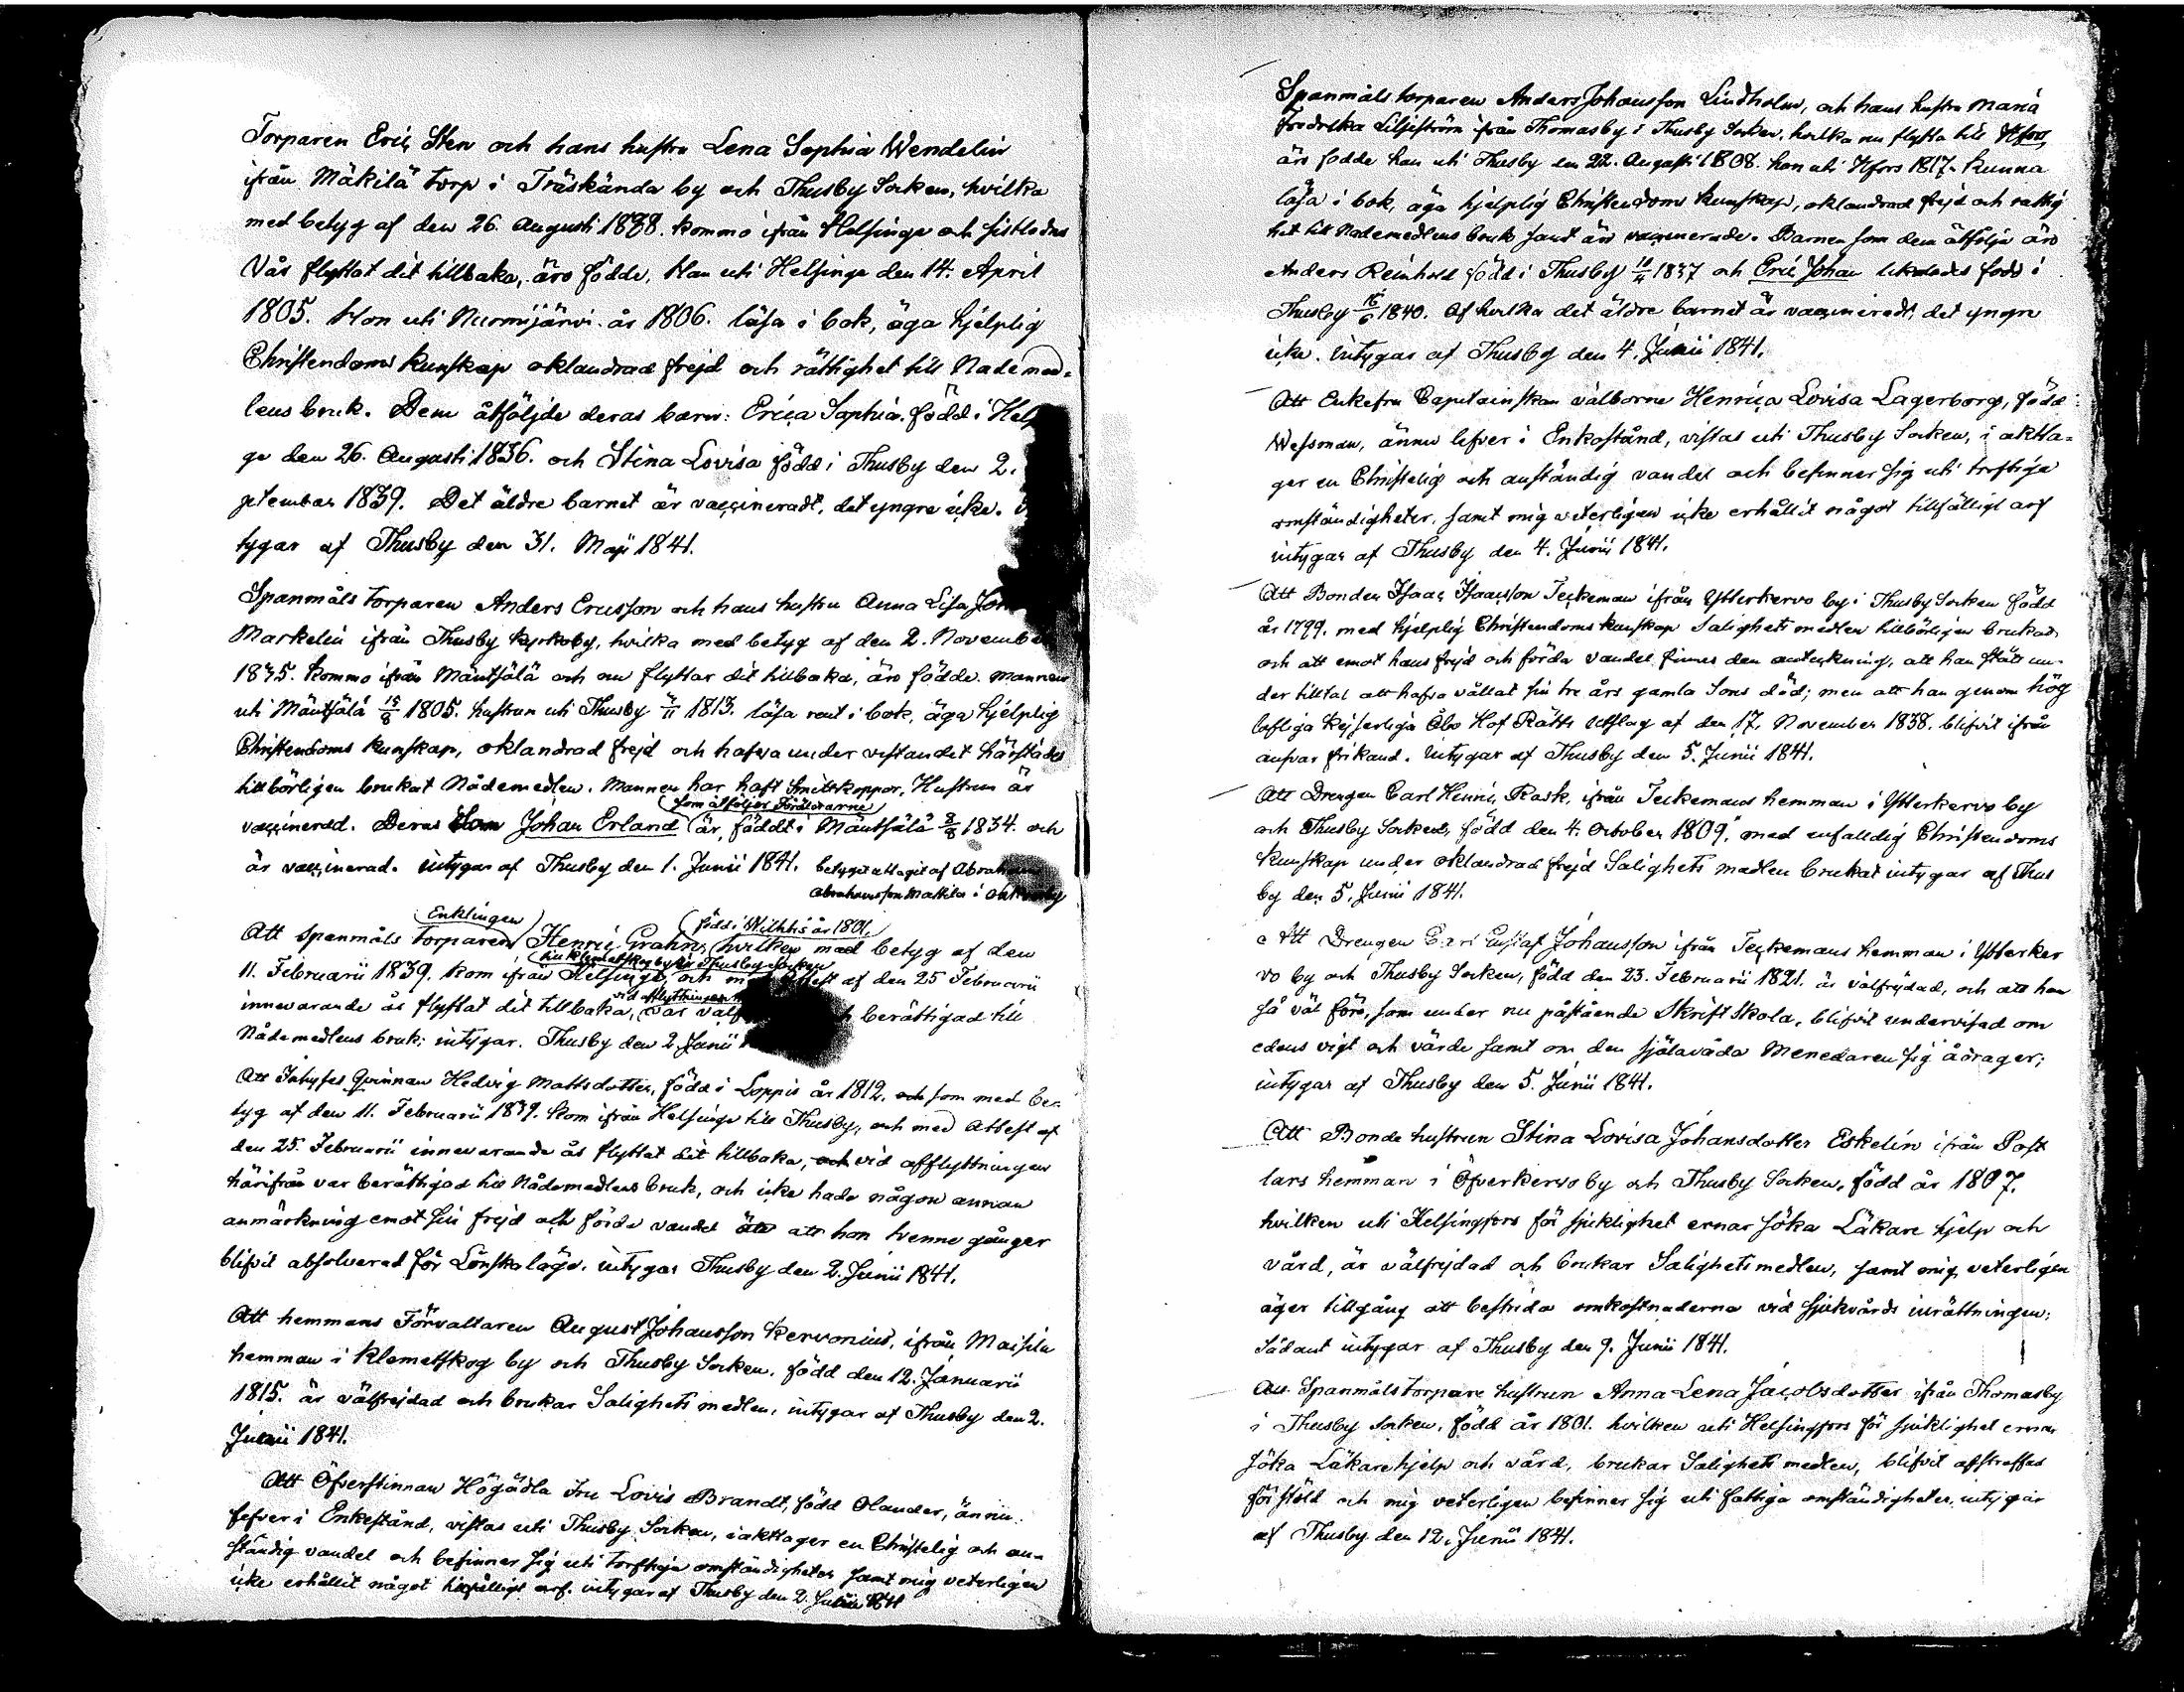 Torparen Eric Sten och hans hustru Lena Sophia Wendelin
ifrån Mäkilä torp i Träskända by och Thusby Socken, hvilka
med betyg af den 26. Augusti 1838. kommo ifrån Helsinge och sistledne
Vår flyttat dit tillbaka, äro födde, Han uti Helsinge den 14. April
1805. Hon uti Nurmijärvi år 1806. läsa i bok, äga hjelplig
Christendoms kunskap oklandrad frejd och rättighet till Nademed-
lens bruk. Dem åtföljde deras barn: Erica Sophia född i Hel
ge den 26. Augusti 1836. och Stina Lovisa född i Thusby den 2.
ptember 1839. Det äldre barnet är vaccineradt, det yngre icke.
tygar af Thusby den 31. Maji 1841.
Spanmåls torparen Anders Ericsson och hans hustru Anna Lisa
Markelin ifrån Thusby kyrkoby, hvilka med betyg af den 2. November
1835. kommo ifrån Mäntsälä och nu flyttar dit tillbaka, äro födde. mannen
uti Mäntsälä 15/8 1805. hustrun uti Thusby /11 1813. läsa rent i bok, äga hjelplig
Christendoms kunskap, oklandrad frejd och hafva under vistandet härstädes
tillbörligen brukat Nådemedlen. Mannen har haft Smittkoppor, Hustrun är
(som åtföljer Föräldrarne)
vaccinerad. Deras Son Johan Erland är, född i Mäntsälä 8/8 1834. och
är vaccinerad. intygar af Thusby den 1. Junii 1841. betyget uttagit af Abraham
Abrahamsson Mattila i
(Enklingen) (född i Wichtis år 1801.)
Att Spanmåls torparen Henric Grahn, hvilken med betyg af den
(till Klemetskog by i Thusby Socken)
11. Februarii 1839. kom ifrån Helsinge och attest af den 25 Februarii
vid afflyttningen
innevarande år flyttat dit tillbaka, var välf berättigad till
Nådemedlens bruk: intygar. Thusby den 2. Junii
Att Inhyses Qvinnan Hedvig Mattsdotter, född i Loppis år 1812. och som med be-
tyg af den 11. Februarii 1839. kom ifrån Helsinge till Thusby, och med Attest af
den 25. Februarii innevarande år flyttat dit tillbaka, och vid afflyttningen
härifrån var berättigad till Nådemedlens bruk, och icke hade någon annan
anmärkning emot sin frejd och förda vandel än att hon tvenne gånger
blifvit absolverad för Lönskaläge. intygar Thusby den 2. Junii 1841.
Att hemmans Förvaltaren August Johansson Kervonius, ifrån
hemman i Klemetskog by och Thusby Socken, född den 12. Januarii
1815. är välfrejdad och brukar Salighets medlen, intygar af Thusby den 2.
Junii 1841.
Att Öfverstinnan Högädla Fru Lovis Brandt, född Olander, ännu
lefver i Enkestånd, vistas uti Thusby Socken, iakttager en Christelig och an-
ständig vandel och befinner sig uti torftiga omständigheter samt mig veterligen
icke erhållit något tillfälligt arf. intygar af Thusby den 2. Junii 1841
Spanmåls torparen Anders Johansson Lindholm, och hans hustru Maria
Fredrika Liljeström ifrån Thomasby i Thusby Socken, hvilka nu flytta till Hfors,
äro födde han uti Thusby den 22. Augusti 1808. hon uti Hfors 1817. kunna
läsa i bok, äga hjelplig Christendoms kunskap, oklandrad frejd och rättig
het till Nademedlens bruk samt äro vaccinerade. Barnen som dem åtfölja äro
Anders Reinhold född i Thusby 1837 och Eric Johan likaledes född i
Thusby 1840. Af hvilka det äldre barnet är vaccineradt, det yngre
icke. intygar af Thusby den 4. Junii 1841.
Att Enkefru Capitainskan välborne Henrica Lovisa Lagerborg, född
Wessman, ännu lefver i Enkestånd, vistas uti Thusby Socken, i aktta-
ger en Christelig och anständig vandel och befinner sig uti torftiga
omständigheter, samt mig veterligen icke erhållit något tillfälligt arf
intygar af Thusby den 4. Junii 1841.
Att Bonden Isaac Isaacsson Teckeman ifrån Ytterkervo by i Thusby Socken född
år 1799. med hjelplig Christendoms kunskap Salighets medlen tillbörligen brukad
och att emot hans frejd och förda vandel finnes den anteckning, att han stått un-
der tilltal att hafva vållat sin tre års gamla Sons död; men att han genom hög
loflige Kejserliga Åbo Hof Rätts utslag af den 17. November 1838. blifvit ifrån
ansvar frikänd. intygar af Thusby den 5. Junii 1841.
Att Drengen Carl Henric Rask, ifrån Teckemans hemman i Ytterkervo by
och Thusby Socken, född den 4. October 1809, med enfalldig Christendoms
kunskap under oklandrad frejd Salighets medlen brukat intygar af Thus
by den 5. Junii 1841.
Att Drengen Carl Gustaf Johansson ifrån Teckemans hemman i Ytterker
vo by och Thusby Socken, född den 23. Februarii 1821. är välfrejdad, och att han
så väl förr, som under nu påstående Skrift Skola, blifvit undervisad om
edens vigt och värde samt om den själavåda Menedaren sig ådrager;
intygar af Thusby den 5. Junii 1841.
Att Bonde hustrun Stina Lovisa Johansdotter Eskelin ifrån Post
lars hemman i Öfverkervo by och Thusby Socken, född år 1807.
hvilken uti Helsingfors för sjuklighet ernar söka Läkare hjelp och
vård, är välfrejdad och brukar Salighetsmedlen, samt mig veterligen
äger tillgång att bestrida omkostnaderna vid sjukvårds inrättningen;
sådant intygar af Thusby den 9. Junii 1841.
Att Spanmåls torpare hustrun Anna Lena Jacobsdotter ifrån Thomasby
i Thusby Socken, född år 1801. hvilken uti Helsingfors för sjuklighet ernar
söka Läkarehjelp och vård, brukar Salighets medlen, blifvit afstraffad
för stöld och mig veterligen befinner sig uti fattiga omständigheter, intygar
af Thusby den 12. Junii 1841.